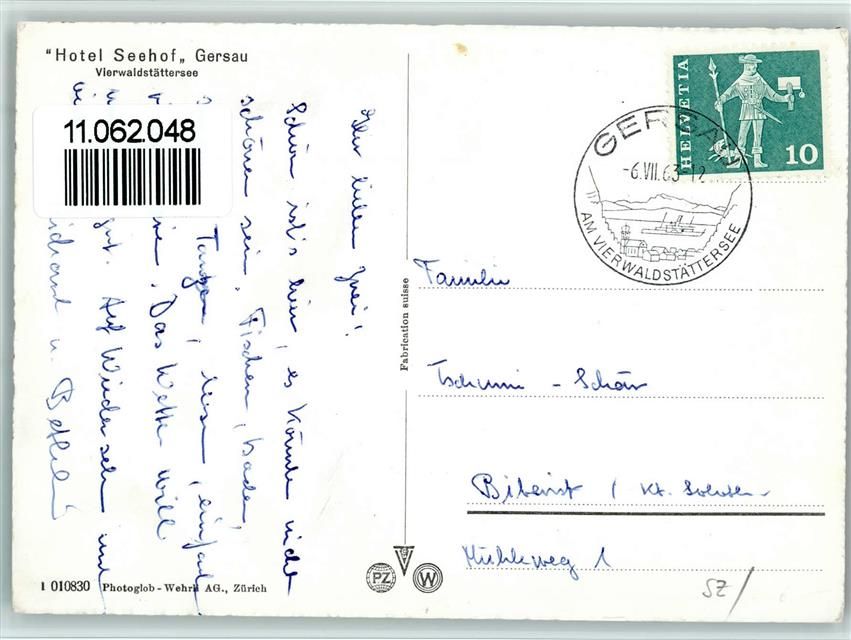 "Hotel Seehof„ Gersau
Vierwaldstättersee
11.062.048
Ihr lieben Zwei!
Schön ist's hier, es könnte nicht
schöner sein, Fischen, baden,
Tanzen, lesen, einfach
Das Wetter will
Auf Wiedersehn und
u. Bethli
HELVETIA
10
GERSAU
-6.VII.63-12
AM VIERWALDSTÄTTERSEE
Familie
Tschumi - Schär
Biberist / Kt. Soloth
Mühleweg 1
Fabrication suisse
PZ
W
1 010830 Photoglob-Wehrli AG., Zürich
SZ/